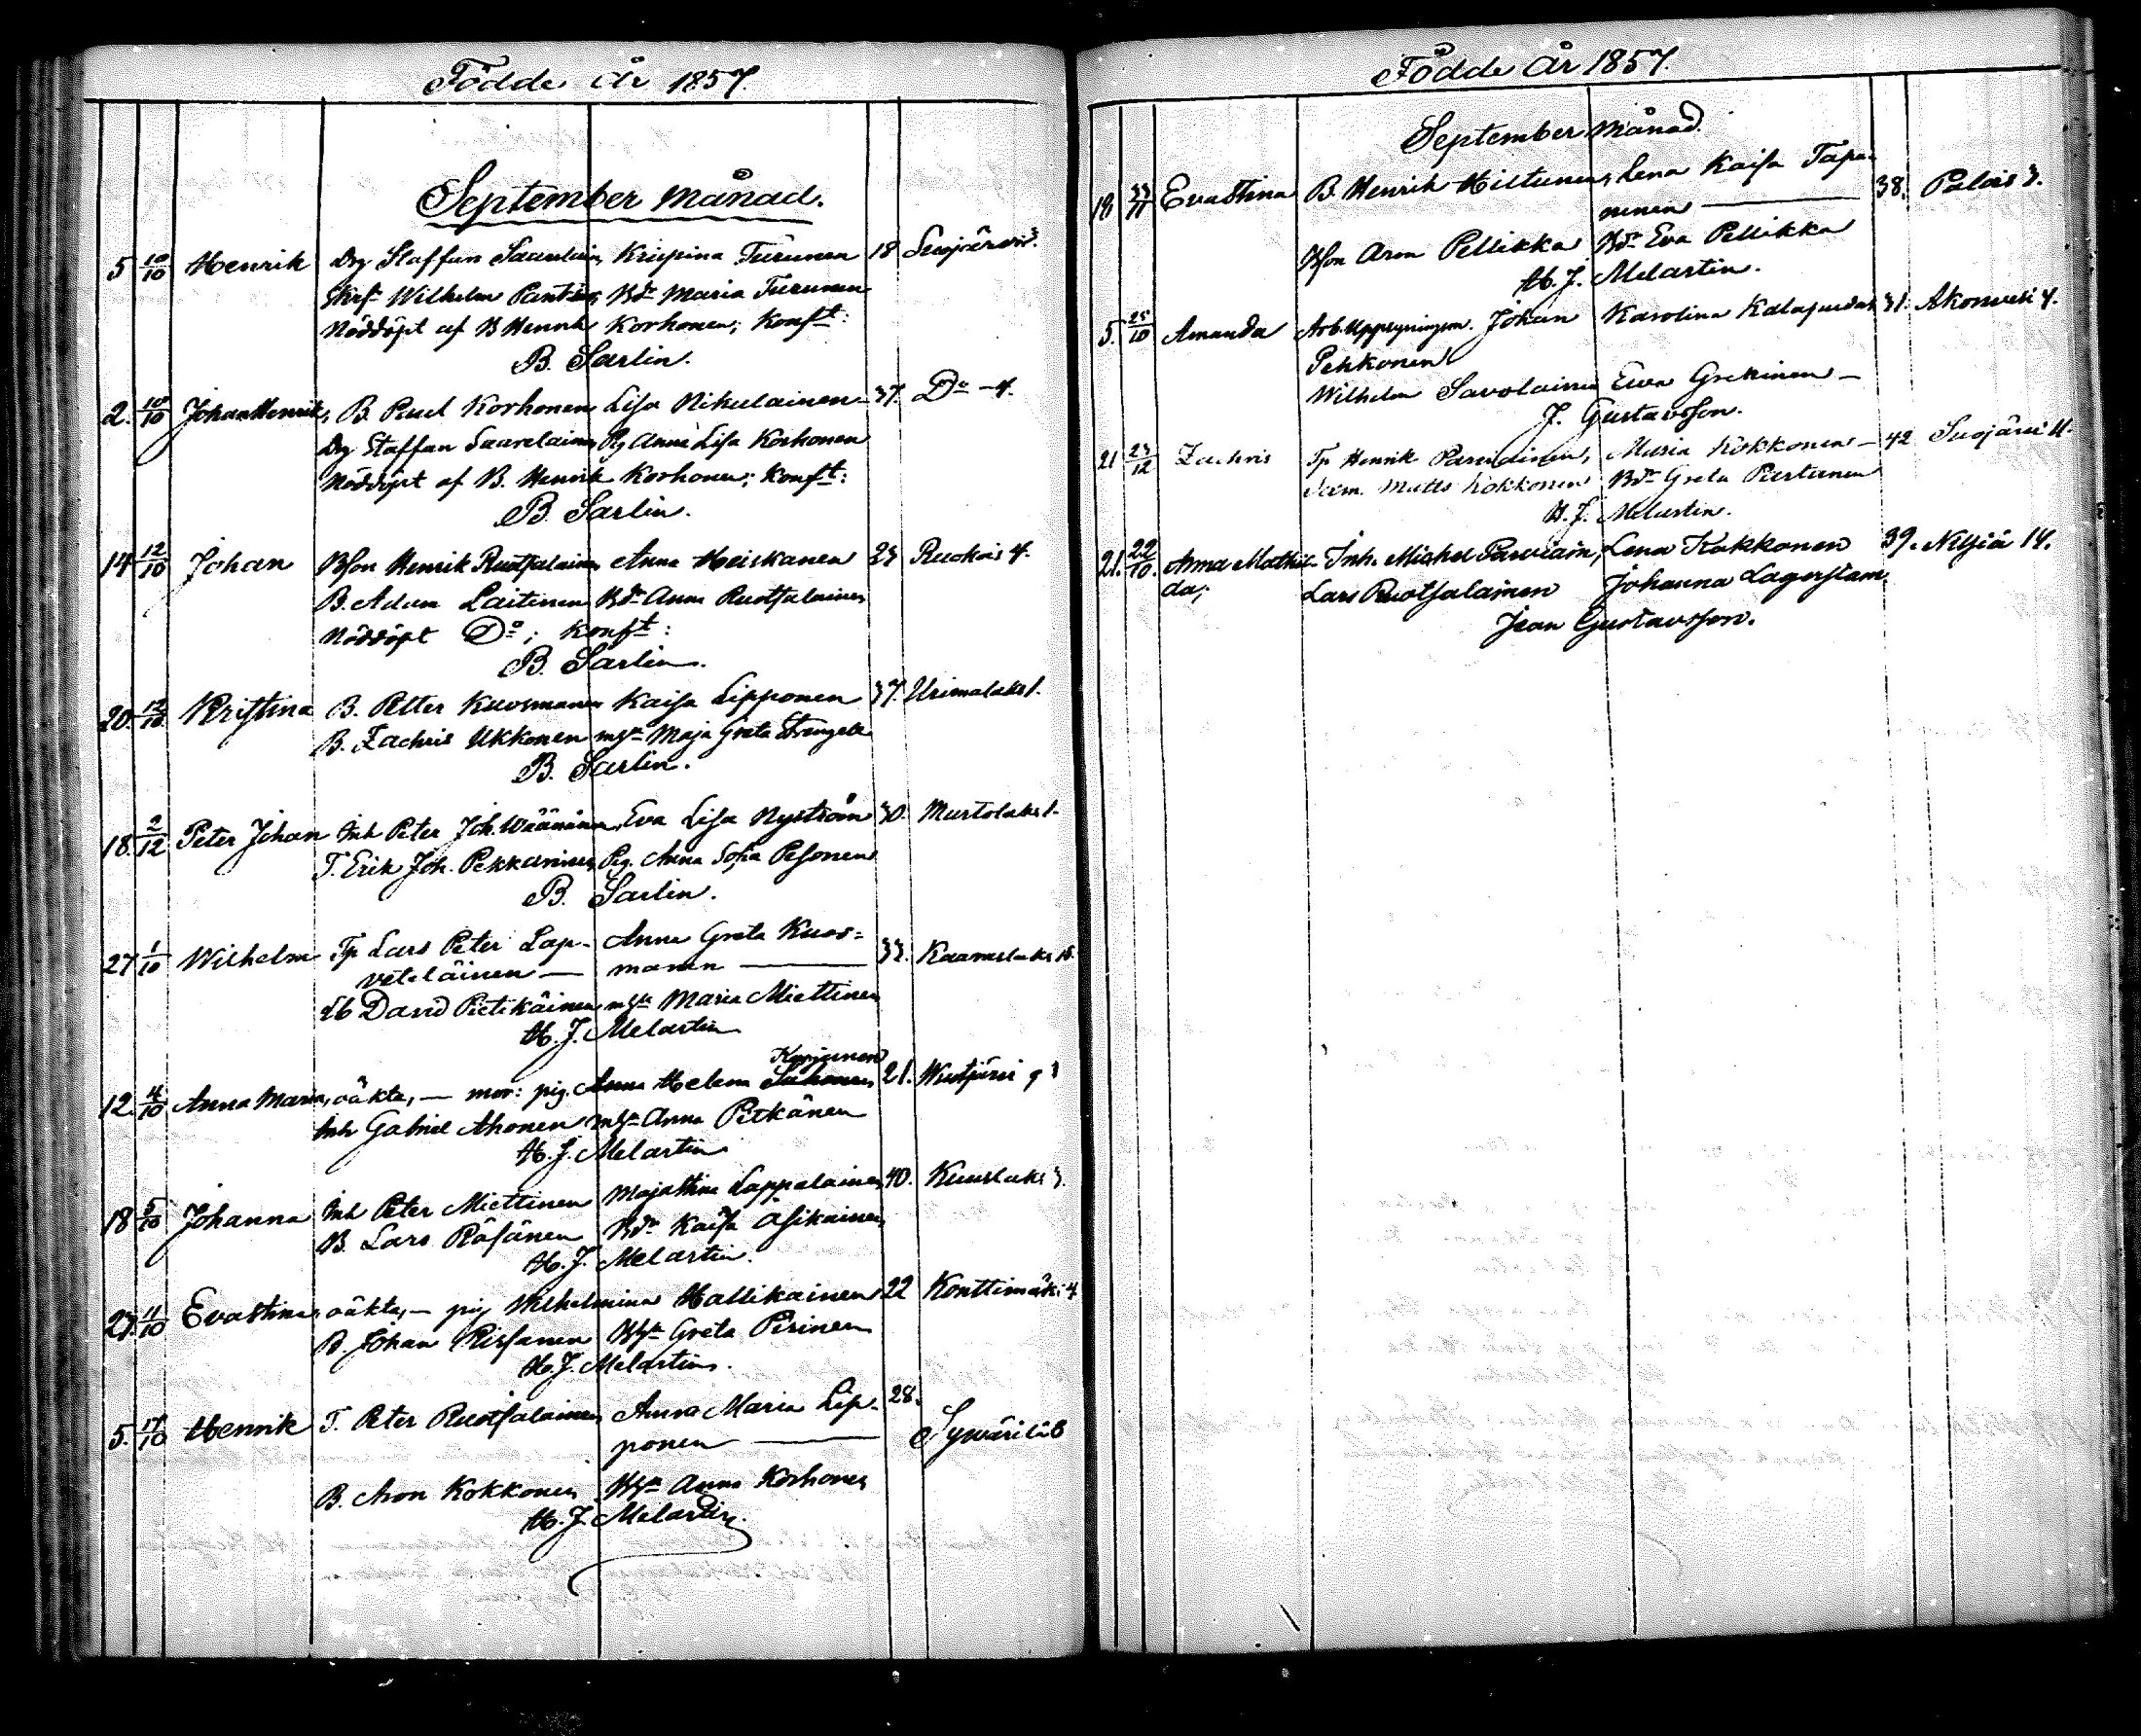 Födde År 1857.
September månad.
5 10/10 Henrik Drg Staffan Saarelain, Kristina Turunen 18 Suojärvi 3.
Wilhelm Bd: Maria Turunen
Nöddöpt af B Henrik Korhonen; Konft:
B. Sarlin.
2. 10/10 Johan Henrik, B. Paul Korhonen Lisa Nikulainen 37. Do - 4.
Drg Staffan Saarelainen Pig Anna Lisa Korhonen
Nöddöpt af B. Henrik Korhonen; Konft:
B. Sarlin.
14 12/10 Johan Bson Henrik Ruotsalainen Anna Heiskanen 23 Ruokois 4.
B. Adam Laitinen Bd: Anna Ruotsalainen
Nöddöpt Do; Konft:
B. Sarlin.
20. 12/10 Kristina B. Petter Kuosmanen Kaisa Lipponen 37. Urimalaks 1.
B. Zachris Ukkonen Maja Greta
B. Sarlin.
18. 2/12 Peter Johan Inh Peter Joh. Wäänänen, Eva Lisa Nyström 30. Murtolaks 1.
T. Erik Joh. Pekkarinen, Pig. Anna Sofia Pesonen
B. Sarlin.
27 1/10 Wilhelm Tp Lars Peter Lap- Anna Greta Kuos= 33. Kaaraslaks 15.
veteläinen — manen —
David Pietikäinen Maria Miettinen
H. J. Melartin
Korjunen
12. 4/10 Anna Maria, oäkta, — mor: pig. Anna Helena Suhonen 21. Wuotjärvi 9
Inh Gabriel Ahonen Anna Pitkänen
H. J. Melartin
18 5/10 Johanna Inh Peter Miettinen Majastina Lappalainen 40. Kuuslaks 3.
B. Lars Räsänen Bd: Kaisa Asikainen
H. J. Melartin.
27. 11/10 Evastina, oäkta, — pig Wilhelmina Hallikainen 22 Konttimäki 4
B. Johan Rissanen Greta Pirinen
H. J. Melartin.
5. 17/10 Henrik T. Peter Ruotsalainen Anna Maria Lip- 28.
ponen — Sywärilä 8
B. Aron Kokkonen Anna Korhonen
H. J. Melartin.
Födde År 1857.
September Månad.
18 Evastina B. Henrik Hiltunen, Lena Kaisa Tapa- 38. Palois 3.
ninen —
Bson Aron Pellikka Bd: Eva Pellikka
H. J. Melartin.
5. 25/10 Amanda Arb. Johan Karolina 31. Akonvesi 4.
Pekkonen
Wilhelm Savolainen Ewa —
J. Gustavsson.
21 23/12 Zachris Tp Henrik Parviainen, Maria Kokkonen — 42 Suojärvi 11.
Matts Kokkonen Bd: Greta Partanen
H. J. Melartin.
21. 22/10. Anna Mathil- Inh. Michel Parviain, Lena Kokkonen 39. Nilsiä 14.
da; Lars Ruotsalainen Johanna Lagerstam
Jean Gustavsson.